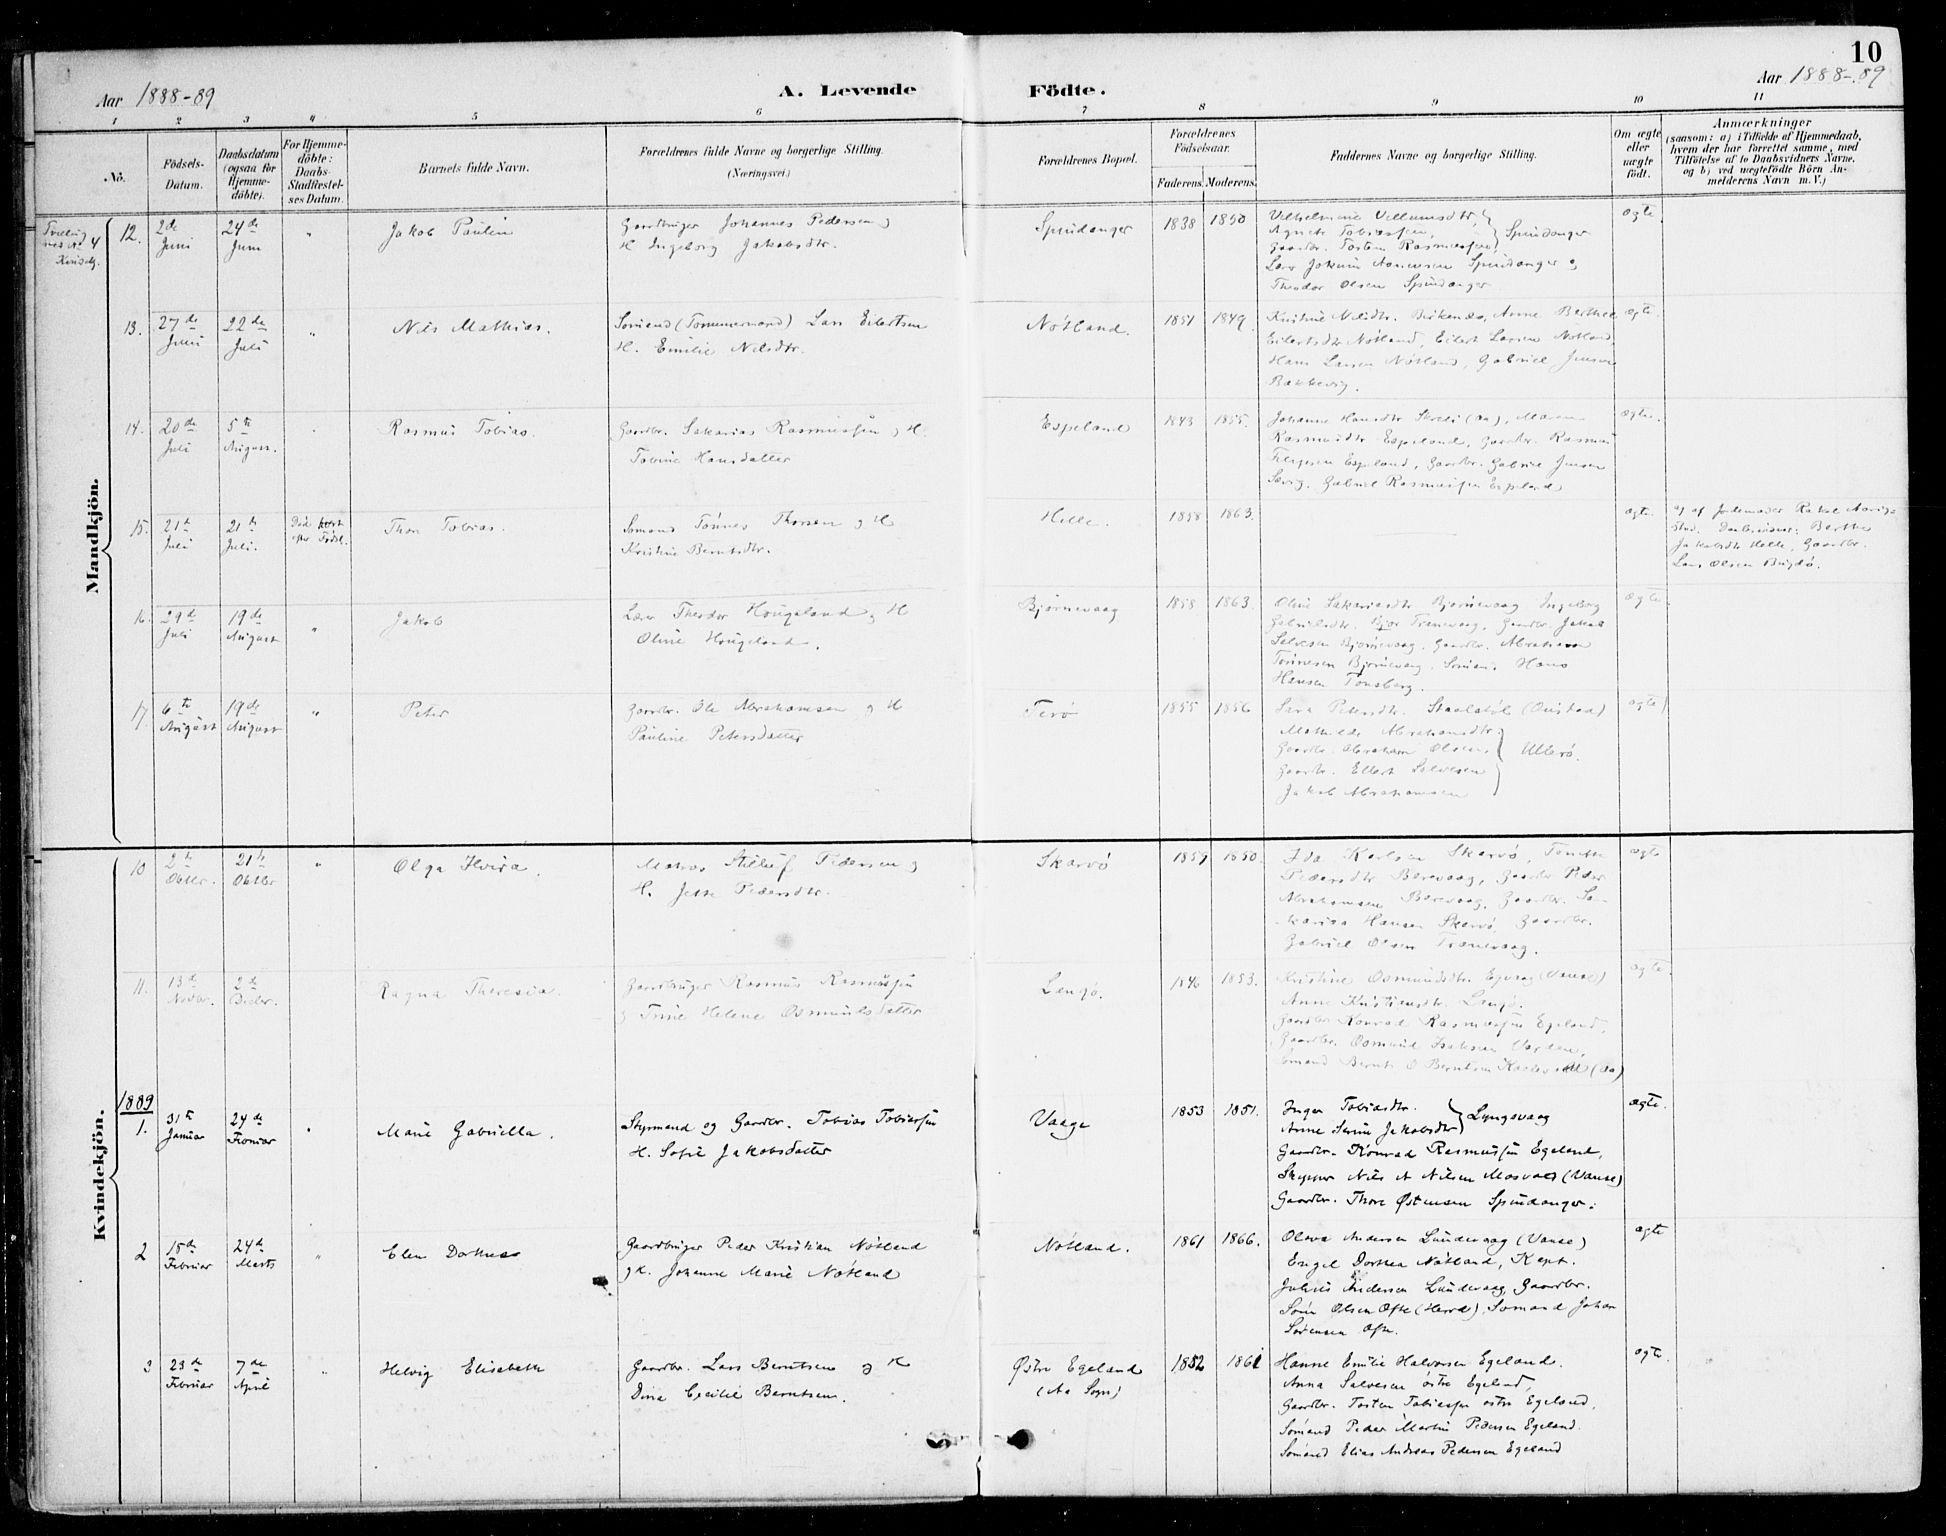 10
Aar 1888-89
A. Levende
Födte.
Aar 1888-89
1 2 3 4 5 6 7 8 9 10 11
No.
Födsels-
Datum.
Daabsdatum
(ogsaa for
Hjemme-
döbte).
For Hjemme-
döbte:
Daabs-
Stadfæstel-
ses Datum.
Barnets fulde Navn.
Forældrenes fulde Navne og borgerlige Stilling.
(Næringsvei.)
Forældrenes Bopæl.
Forældrenes
Födselsaar.
Faderens. Moderens.
Faddernes Navne og borgerlige Stilling.
Om ægte
eller
uægte
födt.
Anmærkninger
(saasom: a) i Tilfælde af Hjemmedaab,
hvem der har forrettet samme, med
Tilföielse af to Daabsvidners Navne,
og b) ved uægtefödte Börn An-
melderens Navn m. V.)
Mandkjön.
12. 2de Juni 24de Juni " Jakob Paulin
Gaardbruger Johannes Pedersen &
H. Ingeborg Jakobsdtr.
Spindanger 1838 1850
Vilhelmine Villumsdtr,
Agnete Tobiassen,
Gaardbr. Tosten Rasmussen } Spindanger
Lærer Jokum Aanensen Spindanger &
Theodor Olsen Spindanger
ægte
13. 27de Juni 22de Juli " Nils Mathias.
Sømand (Tømmermand) Lars Eilertsen
H. Emilie Nilsdtr.
Nøtland. 1851 1849.
Kristine Nilsdtr. Birkenes, Anne Berthea
Eilertsdtr Nøtland, Eilert Larsen Nøtland,
Hans Larsen Nøtland, Gabriel Jensen
Bakkevig.
ægte.
14. 20de Juli 5te August. Rasmus Tobias.
Gaardbr. Sakarias Rasmussen & H.
Tobine Hansdatter
Espeland 1843 1855.
Rasmusdtr Espeland, Gaardbr. Rasmus
Espeland, Gaardbr. Gabriel Jensen
Gabriel Rasmussen Espeland
ægte.
15. 21de Juli 21de Juli. Død kort
efter Fødsl. Thor Tobias.
Sømand Tønnes Thorsen & H
Kristine Berntsdtr.
Helle. 1858 1863.
ægte.
af Jordemoder Rakel
Daabsvidner: Berthe
Jakobsdtr Helle, Gaardbr.
Lars Olsen
16. 29de Juli 19de August " Jakob
Lærer Theodor Hougeland & H
Oline Hougeland.
Bjørnevaag 1858 1863.
Oline Sakariasdtr Bjørnevaag Ingeborg
Gabrielsdtr. Tranevaag, Gaardbr. Jakob
Salvesen Bjørnevaag, Gaardbr. Abraham
Tønnesen Bjørnevaag, Sømand. Hans
Hansen Tønsberg.
ægte.
17. 6te August 19de August " Peter
Gaardbr. Ole Abrahamsen & H
Pauline Petersdatter
Terø 1855 1856
Sara Petersdtr.
Mathilde Abrahamsdtr
Gaardbr. Abraham Olsen,
Gaardbr. Ellert Salvesen
Jakob Abrahamsen } Ullerø.
ægte
Kvindekjön.
10 2de Oktbr. 21de Oktbr " Olga Elvira.
Matros Pedersen &
H. Jette Pedersdtr.
Skarvø 1857 1850.
Ida Karlsen Skarvø, Tonette
Pedersdtr Barevaag, Gaardbr Peder
Abrahamsen Barevaag, Gaardbr. Sa-
karias Hansen Skarvø, Gaardbr.
Gabriel Olsen Tranevaag.
ægte
11. 13de Novbr. 2de Decbr. Ragna Theresia.
Gaardbruger Rasmus Rasmussen
& Trine Helene Osmundsdatter
Lengø. 1846 1853.
Kristine Osmundsdtr. (Vanse)
Anne Kristiansdtr. Lengø.
Gaardbr Konrad Rasmussen Egeland,
Gaardbr. Osmund Isaksen Varden,
Sømand Bernt O Berntsen (Aa)
ægte.
1889
1. 31te Januar 24de Februar " Marie Gabriella.
Styrmand og Gaardbr. Tobias Tobiassen
H. Sofie Jakobsdatter
Vaage 1853 1851.
Inger Tobiasdtr.
Anne Serine Jakobsdtr } Lyngsvaag
Gaardbr. Konrad Rasmussen Egeland,
Skipper Nils A Nilsen Mosvald (Vanse)
Gaardbr. Thore Østensen Spindanger.
ægte.
2 15de Februar 24de Marts " Elen Dorthea
Gaardbruger Peder Kristian Nøtland
& H. Johanne Marie Nøtland
Nøtland. 1861 1866.
Oleva Andersen Lundevaag (Vanse)
Engel Dorthea Nøtland, Kapt.
Julius Andersen Lundevaag, Gaardbr.
Søren Olsen Ofte (Herred), Sømand Johan
Sørensen Ofte.
ægte
3 23de Februar 7de April " Helvig Elisabeth
Gaardbr. Lars Berntsen & H
Dina Cecilie Berntsen.
Østre Egeland
(Aa Sogn)
1852 1861
Hanne Emilie Halvorsen Egeland.
Anna Salvesen østre Egeland,
Gaardbr. Tosten Tobiassen østre Egeland,
Sømand Peder Martin Pedersen Egeland.
Sømand Elias Andreas Pedersen Egeland
ægte.